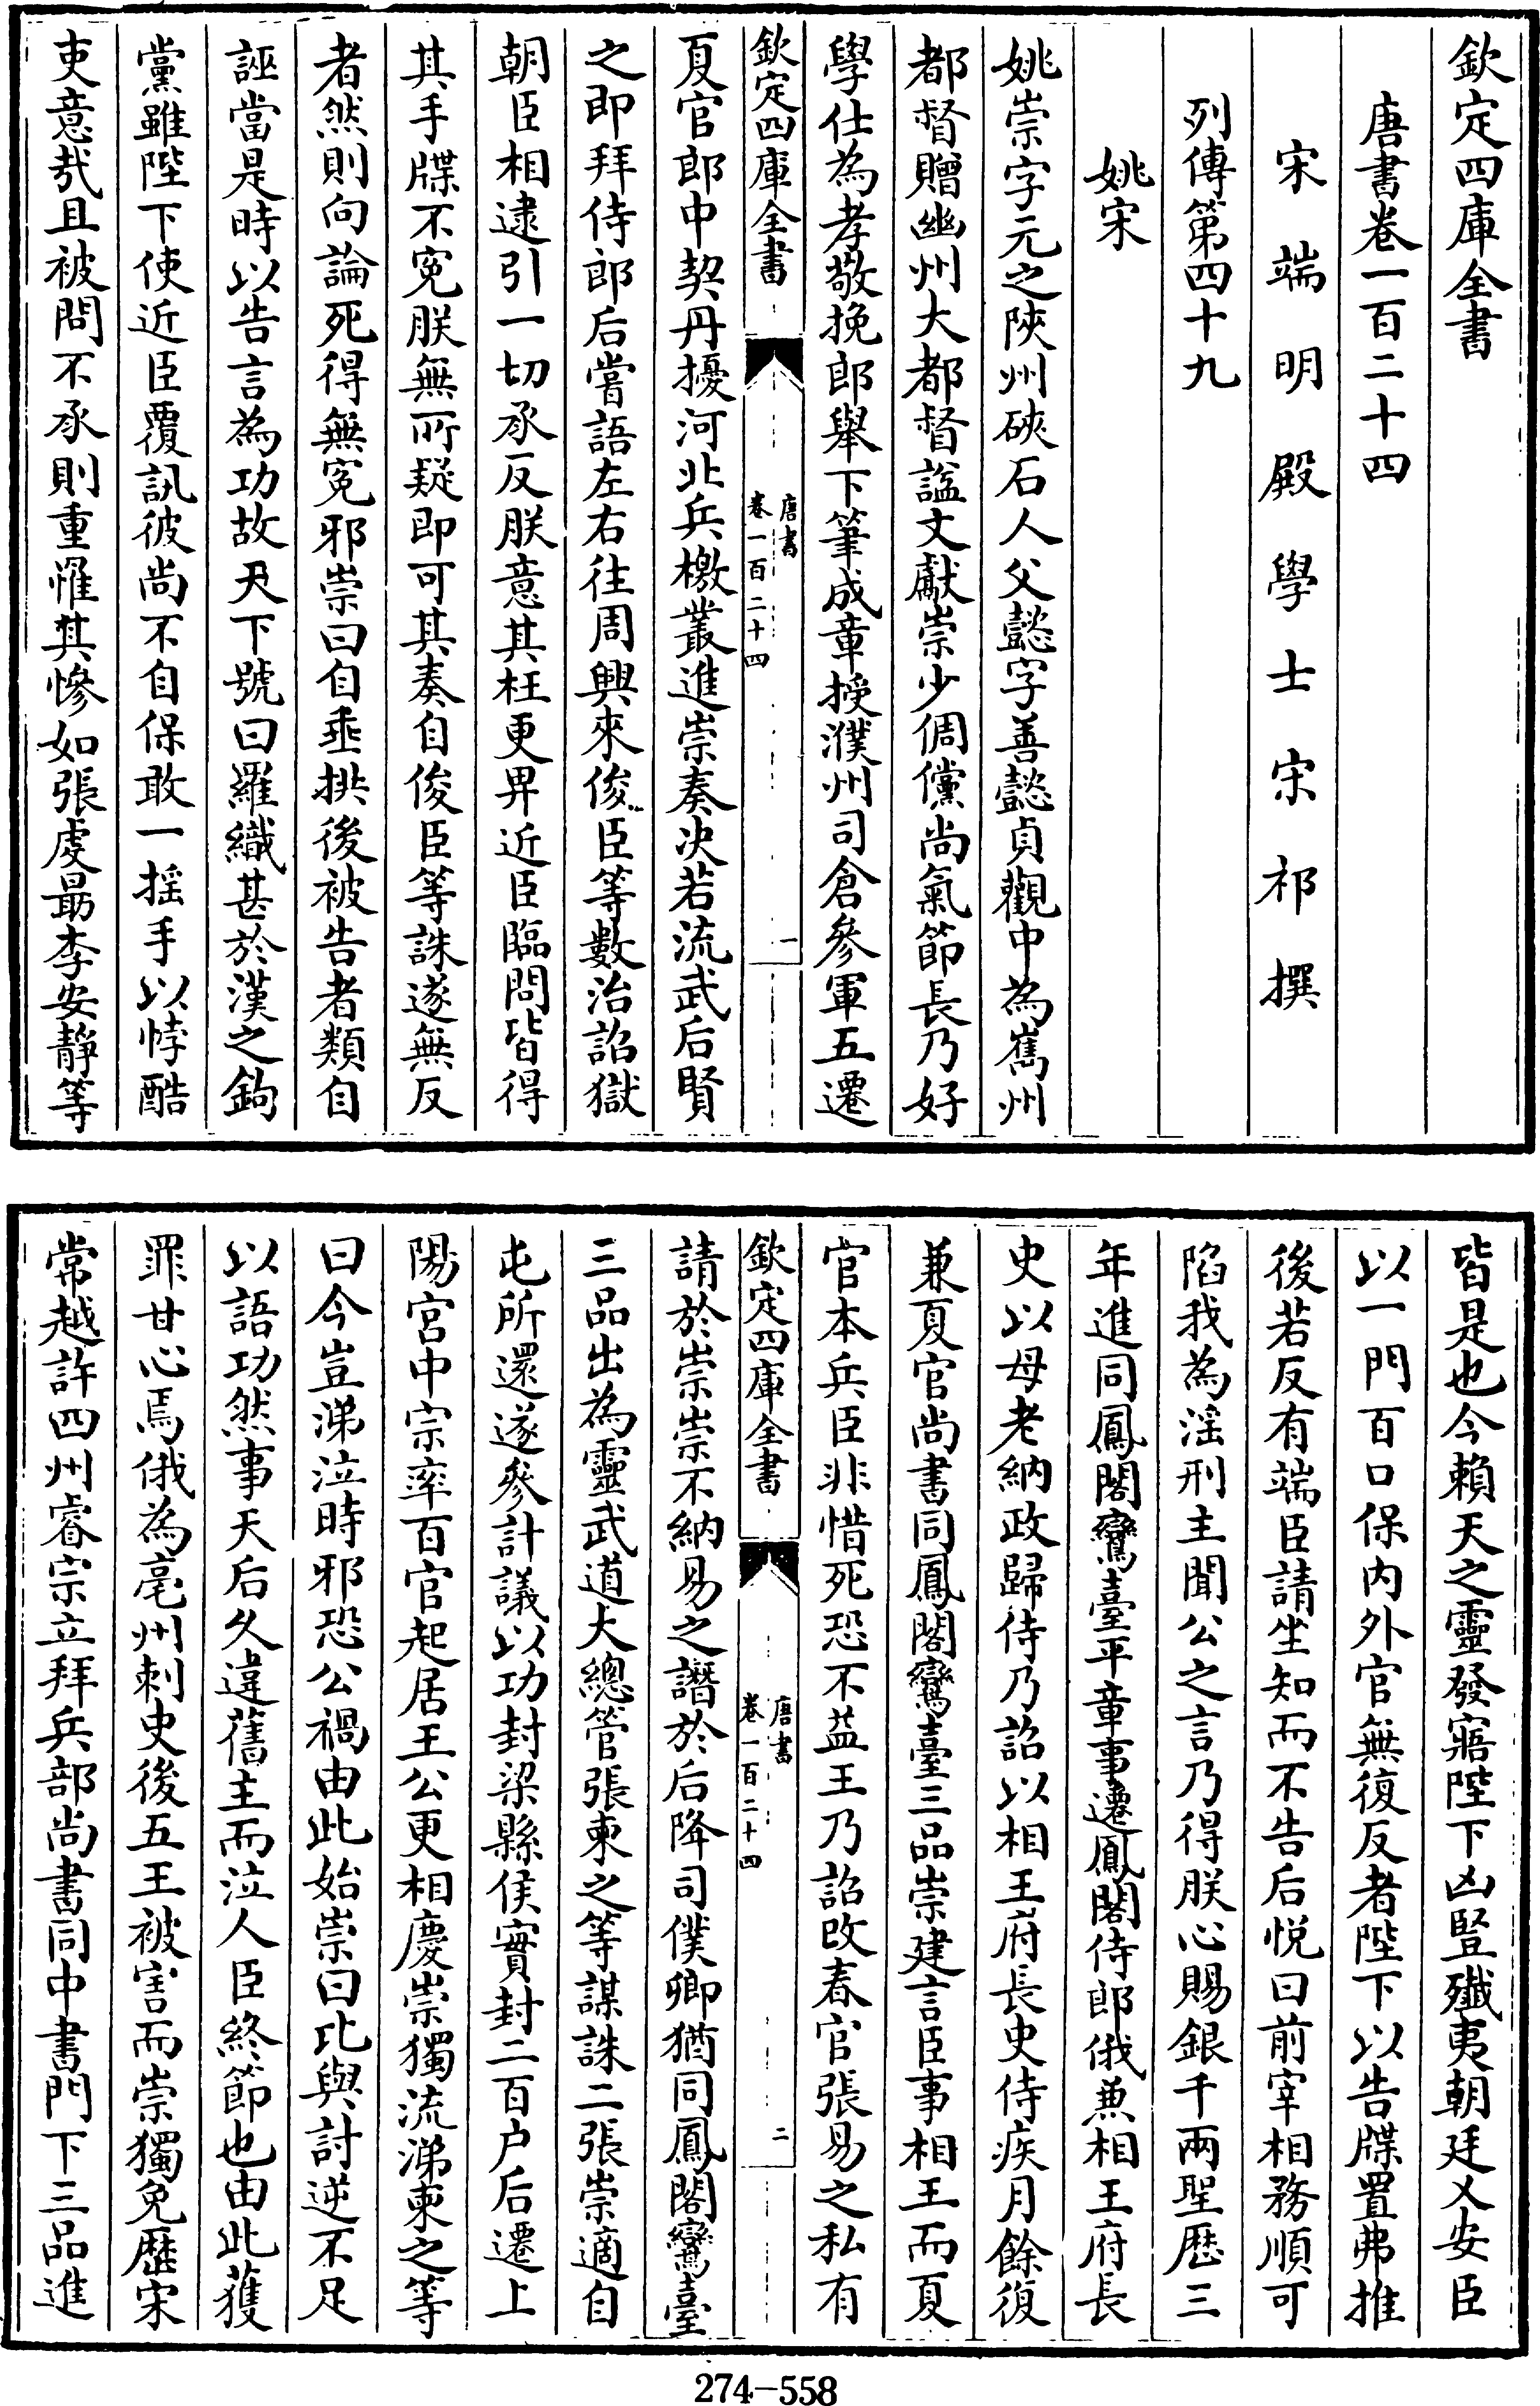 欽定四庫全書
唐書卷一百二十四
宋端明殿學士宋祁撰
列傳第四十九
姚宋
姚崇字元之陜州硤石人父懿字善懿貞觀中為嶲州
都督贈幽州大都督諡文獻崇少倜儻尚氣節長乃好
學仕為孝敬挽郎舉下筆成章授濮州司倉參軍五遷
欽定四庫全書
唐書
卷一百二十四
一
夏官郎中契丹擾河北兵檄叢進崇奏决若流武后賢
之即拜侍郎后嘗語左右往周興來俊臣等數治詔獄
朝臣相逮引一切承反朕意其枉更畀近臣臨問皆得
其手牒不寃朕無所疑即可其奏自俊臣等誅遂無反
者然則向論死得無寃邪崇曰自垂拱後被告者類自
誣當是時以告言為功故天下號曰羅織甚於漢之鉤
黨雖陛下使近臣覆訊彼尚不自保敢一揺手以悖酷
吏意哉且被問不承則重罹其慘如張虔朂李安靜等
皆是也今賴天之靈發寤陛下凶豎殲夷朝廷乂安臣
以一門百口保内外官無復反者陛下以告牒置弗推
後若反有端臣請坐知而不告后悦曰前宰相務順可
陷我為滛刑主聞公之言乃得朕心賜銀千兩聖厯三
年進同鳳閣鸞臺平章事遷鳳閣侍郎俄兼相王府長
史以母老納政歸侍乃詔以相王府長史侍疾月餘復
兼夏官尚書同鳳閣鸞臺三品崇建言臣事相王而夏
官本兵臣非惜死恐不益王乃詔改春官張易之私有
欽定四庫全書
唐書
卷一百二十四
二
請於崇崇不納易之譖於后降司僕卿猶同鳳閣鸞臺
三品出為靈武道大總管張柬之等謀誅二張崇適自
屯所還遂參計議以功封梁縣侯實封二百户后遷上
陽宮中宗率百官起居王公更相慶崇獨流涕柬之等
曰今豈涕泣時邪恐公禍由此始崇曰比與討逆不足
以語功然事天后久違舊主而泣人臣終節也由此獲
罪甘心焉俄為亳州刺史後五王被害而崇獨免歴宋
常越許四州睿宗立拜兵部尚書同中書門下三品進
274-558